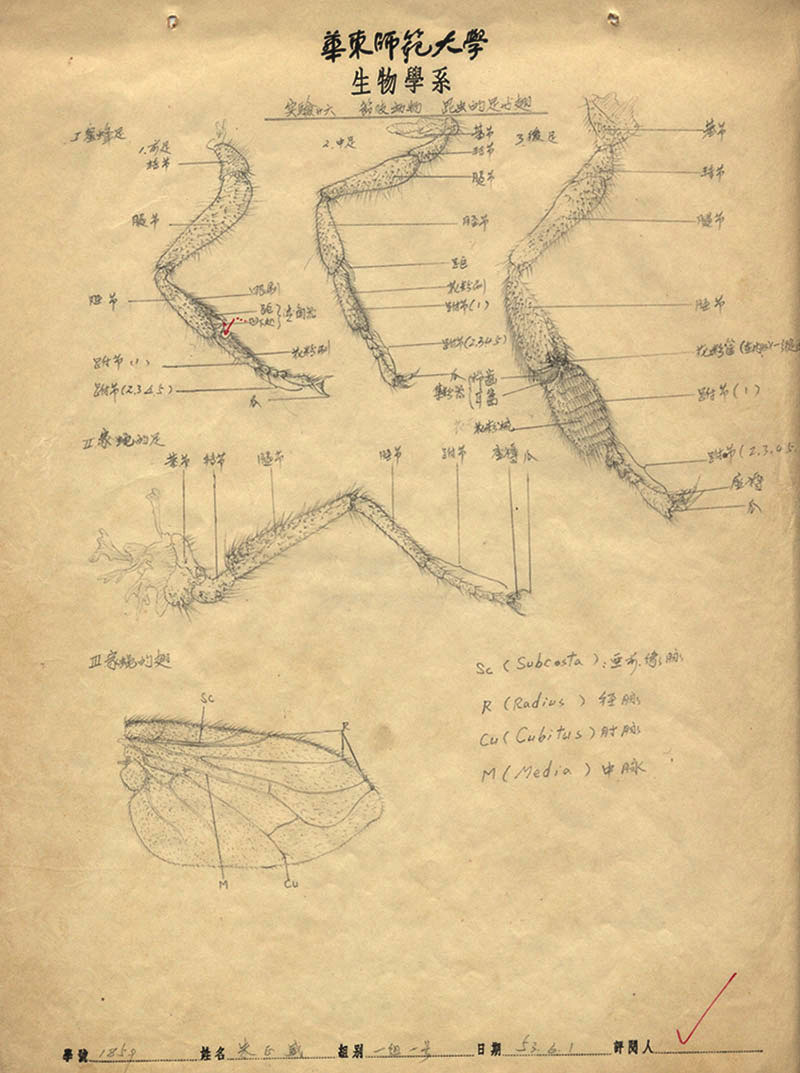 華東師範大學
生物學系
實驗十六 節肢動物 昆虫的足与翅
I 蜜蜂足
1. 前足
轉节
腿节
胫节
距
花粉刷
跗节 (1)
跗节 (2,3,4,5)
爪
2. 中足
基节
轉节
腿节
胫节
距
花粉刷
跗节 (1)
跗节 (2,3,4,5)
爪
3. 後足
基节
轉节
腿节
胫节
花粉筐
跗节 (1)
跗节 (2,3,4,5
爪
II 家蝇的足
基节 轉节 腿节 胫节 跗节 爪
III 家蝇的翅
Sc
R
M
Cu
Sc (Subcosta) : 亚前缘脉
R (Radius) 径脉
Cu (Cubitus) 肘脉
M (Media) 中脉
學號 1859 姓名 朱正威 組别 一组一号 日期 53.6.1 評閱人